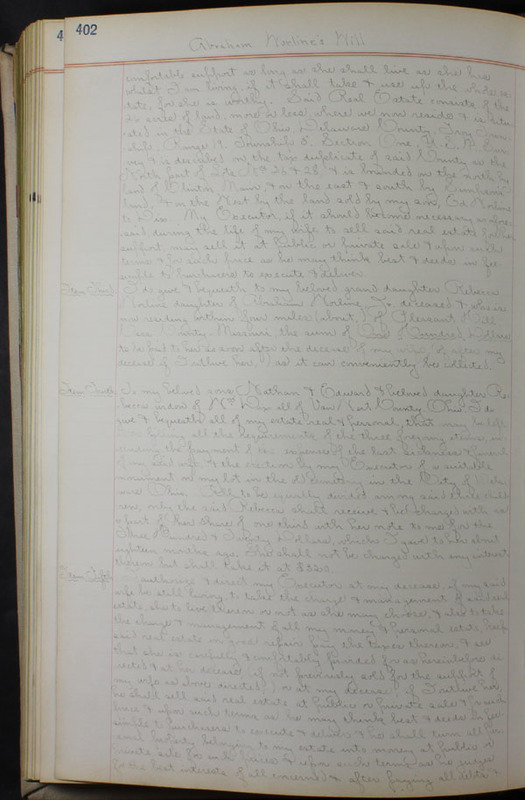 402
Abraham Worline's Will
comfortable support as long as she shall live as she has
whilst I am living, if it shall take & use up the whole es-
tate, for she is worthy. Said Real Estate consists of the
26 acres of land, more or less, where we now reside & is situ-
ated in the State of Ohio, Delaware County, Troy Town-
ship, Range 19, Township 5, Section One, U. S. M. Sur-
vey & is described on the tax duplicate of said County as the
North part of Lots No. 26 & 28 & is bounded on the north by
land of Clinton Main, & on the east & south by
land, & on the West by the land sold by my son, Ed Worline
to. My Executor, if it should become necessary as afore-
said during the life of my wife to sell said real estate for her
support, may sell it at public or private sale & upon such
terms & for such price as he may think best & deeds in fee
simple to purchasers to execute & deliver.
Item Third I do give & bequeath to my beloved grand daughter Rebecca
Worline daughter of Abraham Worline, Jr. deceased & who is
now residing within four miles (about,) of Pleasant Hill
Cass County, Missouri the sum of One Hundred Dollars
to be paid to her as soon after the decease of my wife, (or after my
decease if I outlive her,) as it can conveniently be collected.
Item Fourth To my beloved sons Nathan & Edward & beloved daughter Re-
becca widow of Wm. all of Van Wert County, Ohio I do
give & bequeath all of my estate real & personal, that may be left
after filling all the requirements of the three foregoing items, in-
cluding the payment of the expenses of the last sickness & funeral
of my said wife & the erection by my Executor of a suitable
monument on my lot in the Cemetery in the City of Dela-
ware Ohio. All to be equally divided among my said three child-
ren, only the said Rebecca shall receive & be charged with as
a part of her share of one third with her note to me for the
Three Hundred & Twenty Dollars, which I gave to her about
eighteen months ago. She shall not be charged with any interest
thereon but shall take it at $320.
Item Fifth I authorize & direct my Executor at my decease, if my said
wife be still living, to take the charge & management of said real
estate, she to live thereon or not as she may choose, & also to take
the charge & management of all my money & personal estate, keep
said real estate in good repair pay the taxes thereon, & see
that she is carefully & comfortably provided for as hereinbefore di-
rected & at her decease (if not previously sold for the support of
my wife as above directed) or at my decease if I outlive her,
he shall sell said real estate at public or private sale & for such
price & upon such terms as he may think best & deeds in fee
simple to purchasers to execute & deliver & he shall turn all per-
sonal property belonging to my estate into money at public or
private sale for such prices & upon such terms as he judges
for the best interests of all concerned & after paying all debts &